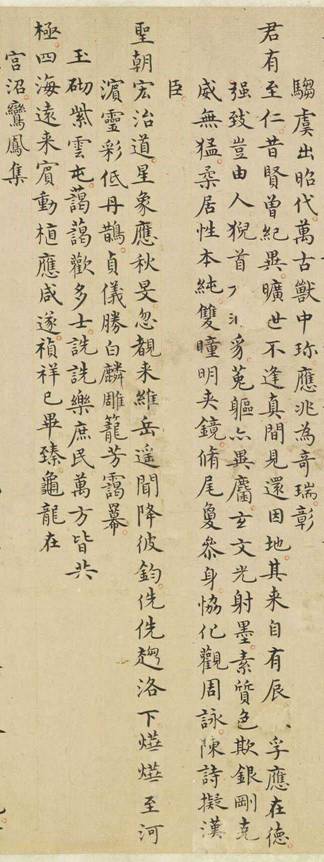 騶虞出昭代萬古獸中珍應兆為奇瑞彰
君有至仁昔賢曾紀異曠世不逢真間見還因地其来自有辰孚應在德
强致豈由人猊首豸菟軀亦異麕玄文光射墨素質色欺銀剛克
威無猛柔居性本純雙瞳明夾鏡脩尾夐叅身恊化觀周詠陳詩擬漢
臣
聖朝宏治道星象應秋旻忽覩来維岳遥聞降彼鈞侁侁趨洛下爗爗至河
濵靈彩低丹鵲貞儀勝白麟雕籠芳靄羃
玉砌紫雲屯藹藹歡多士詵詵樂庶民萬方皆共
極四海遠来賔動植應咸遂禎祥已畢臻龜龍在
宫沼鸞鳳集